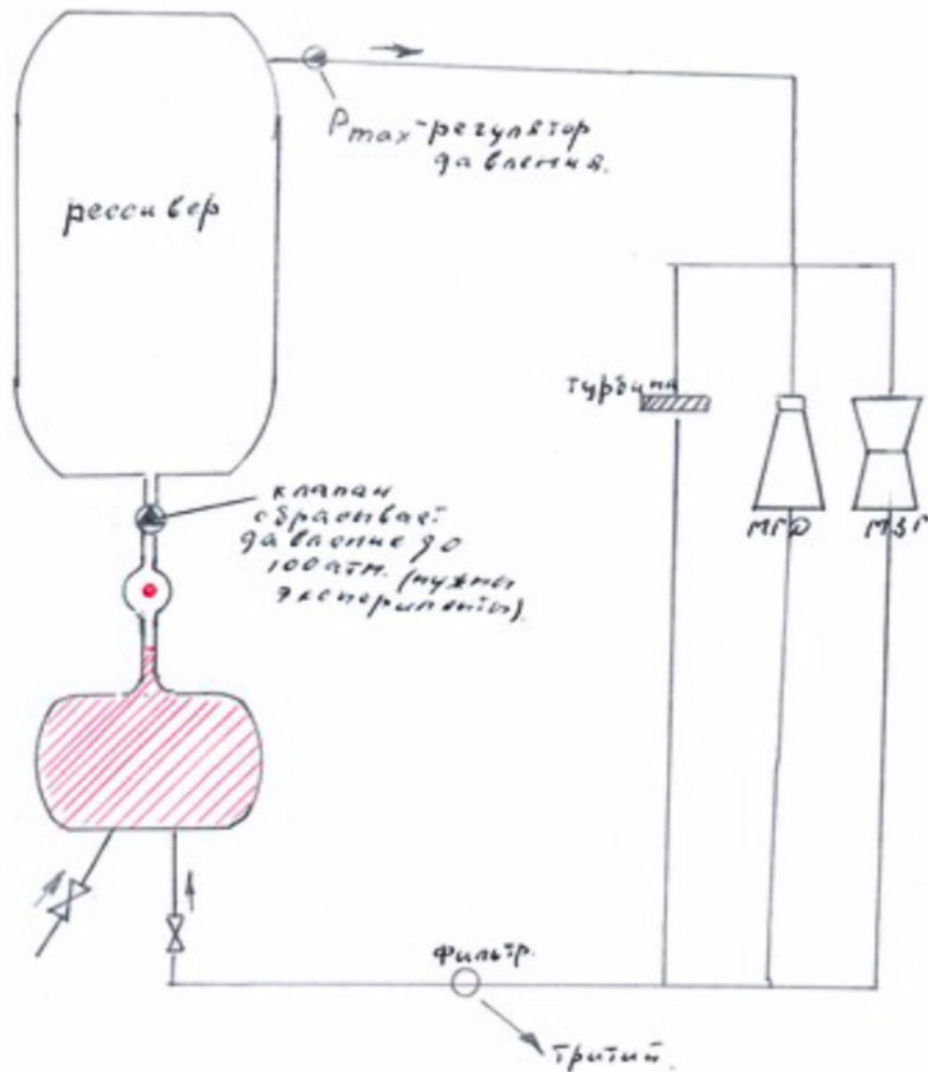 Pmax-регулятор
давления.
рессивер
турбина
клапан
сбрасывает
давление до
100 атм. (нужны
эксперименты).
МГД
фильтр.
тритий.